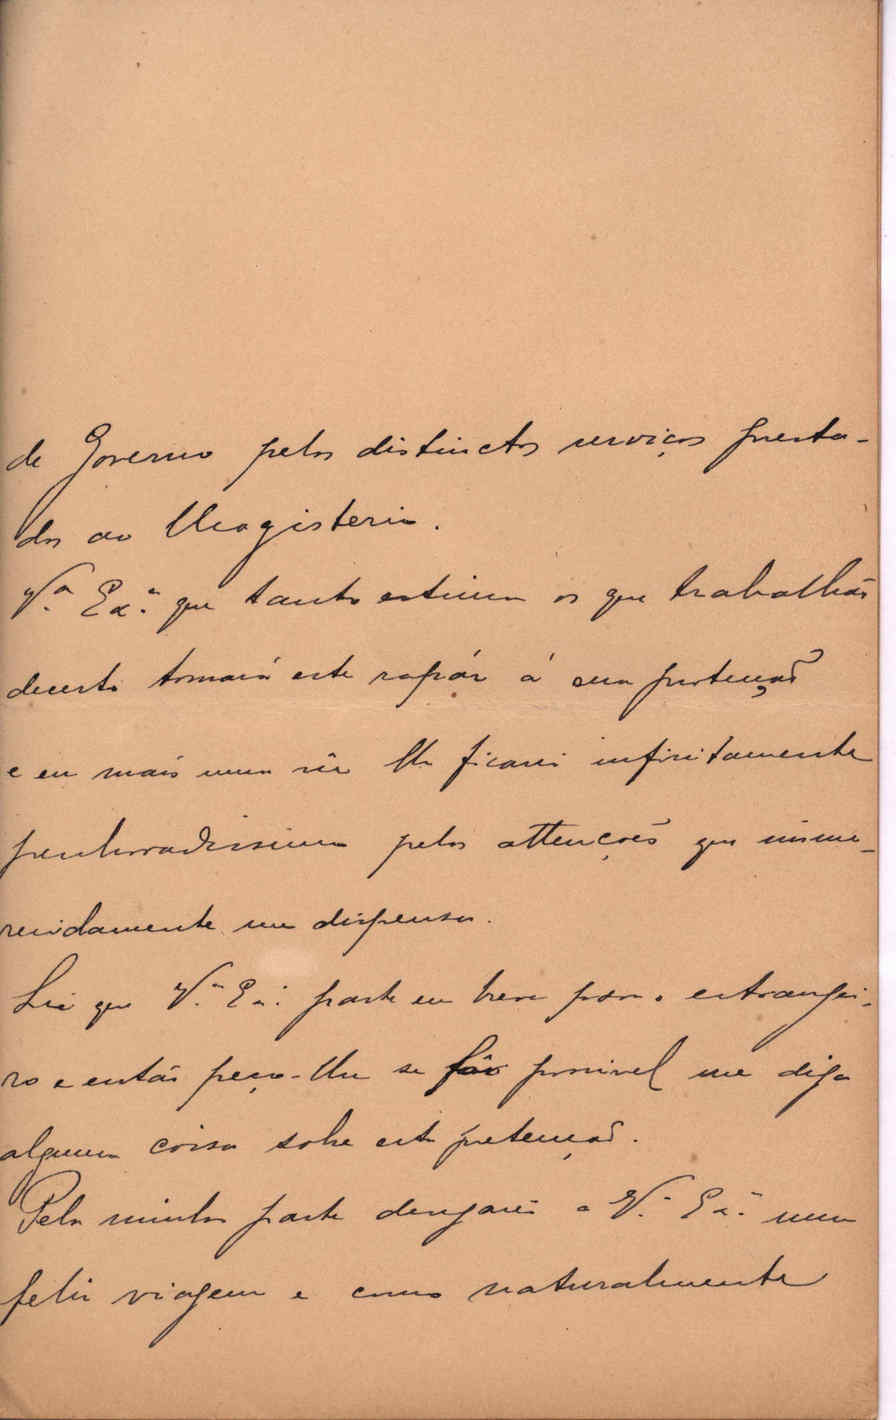 do Governo pelos distinctos serviços presta-
dos ao Magisterio.
V.ª Ex.ª que tanto estima os que trabalhão
decerto tomará este rapáz á sua protecção
e eu mais uma vêz lhe ficarei infinitamente
penhoradissima pelas attenções que imme-
recidamente me dispensa.
Lei que V.ª Ex.ª parte em breve para o estrangei-
ro e então peço-lhe se fôr possivel me diga
alguma coisa sobre esta pretenção.
Pela minha parte desejarei a V.ª Ex.ª uma
feliz viagem e como naturalmente